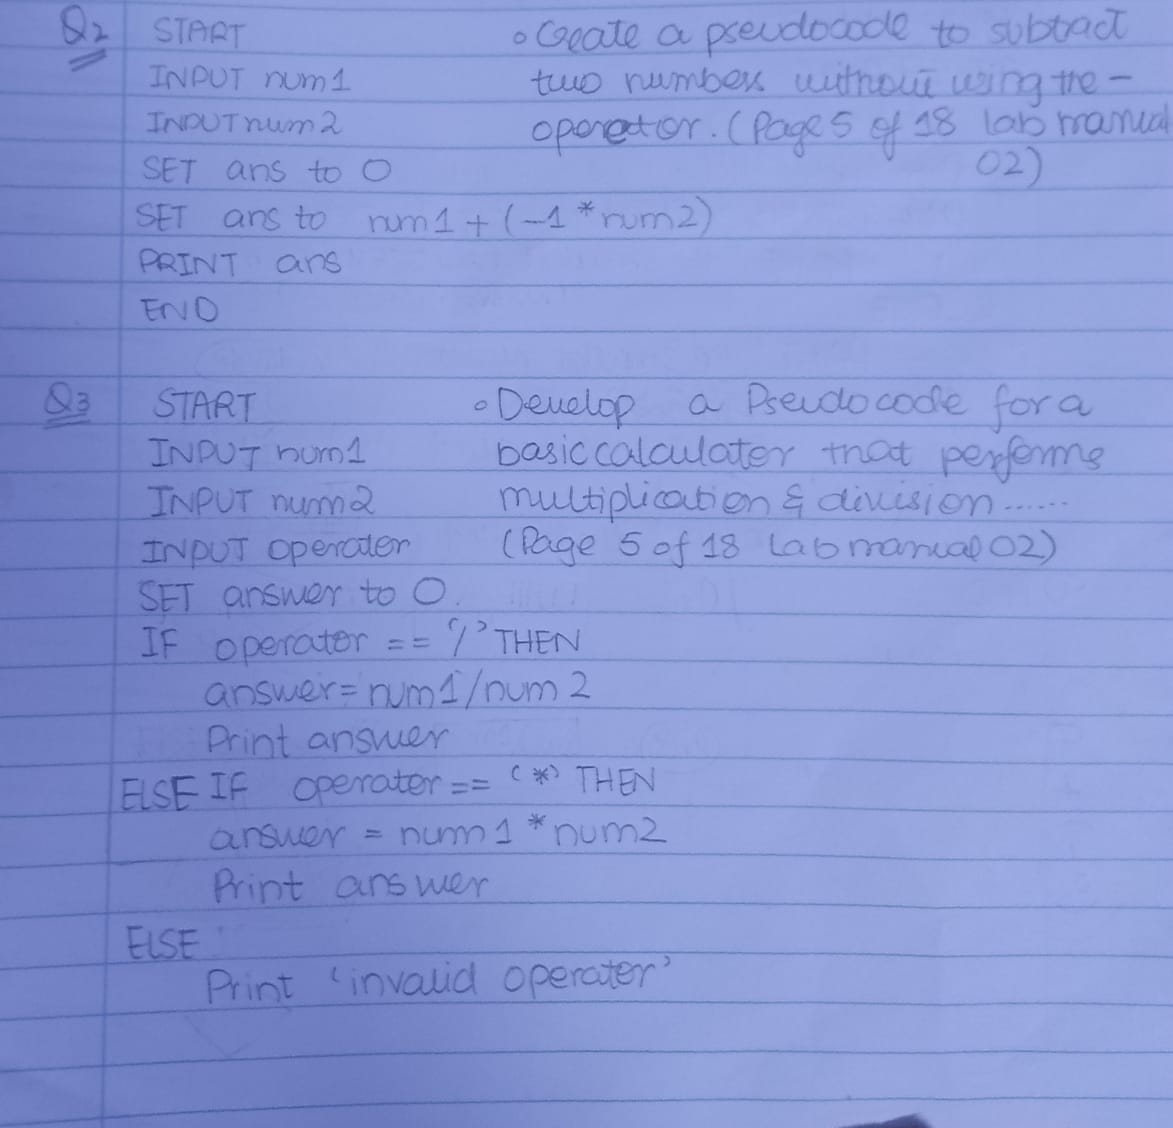 Q2 START
INPUT num1
INPUT num2
SET ans to 0
SET ans to num1 + (-1 * num2)
PRINT ans
END
• Create a pseudocode to subtract
two numbers without using the -
operator. (Page 5 of 18 lab manual
02)
Q3 START
INPUT num1
INPUT num2
INPUT operator
SET answer to 0
IF operator == '/' THEN
answer = num1/num2
Print answer
ELSE IF operator == '*' THEN
answer = num1 * num2
Print answer
ELSE
Print 'invalid operator'
• Develop a Pseudocode for a
basic calculator that performs
multiplication & division ......
(Page 5 of 18 Lab manual 02)